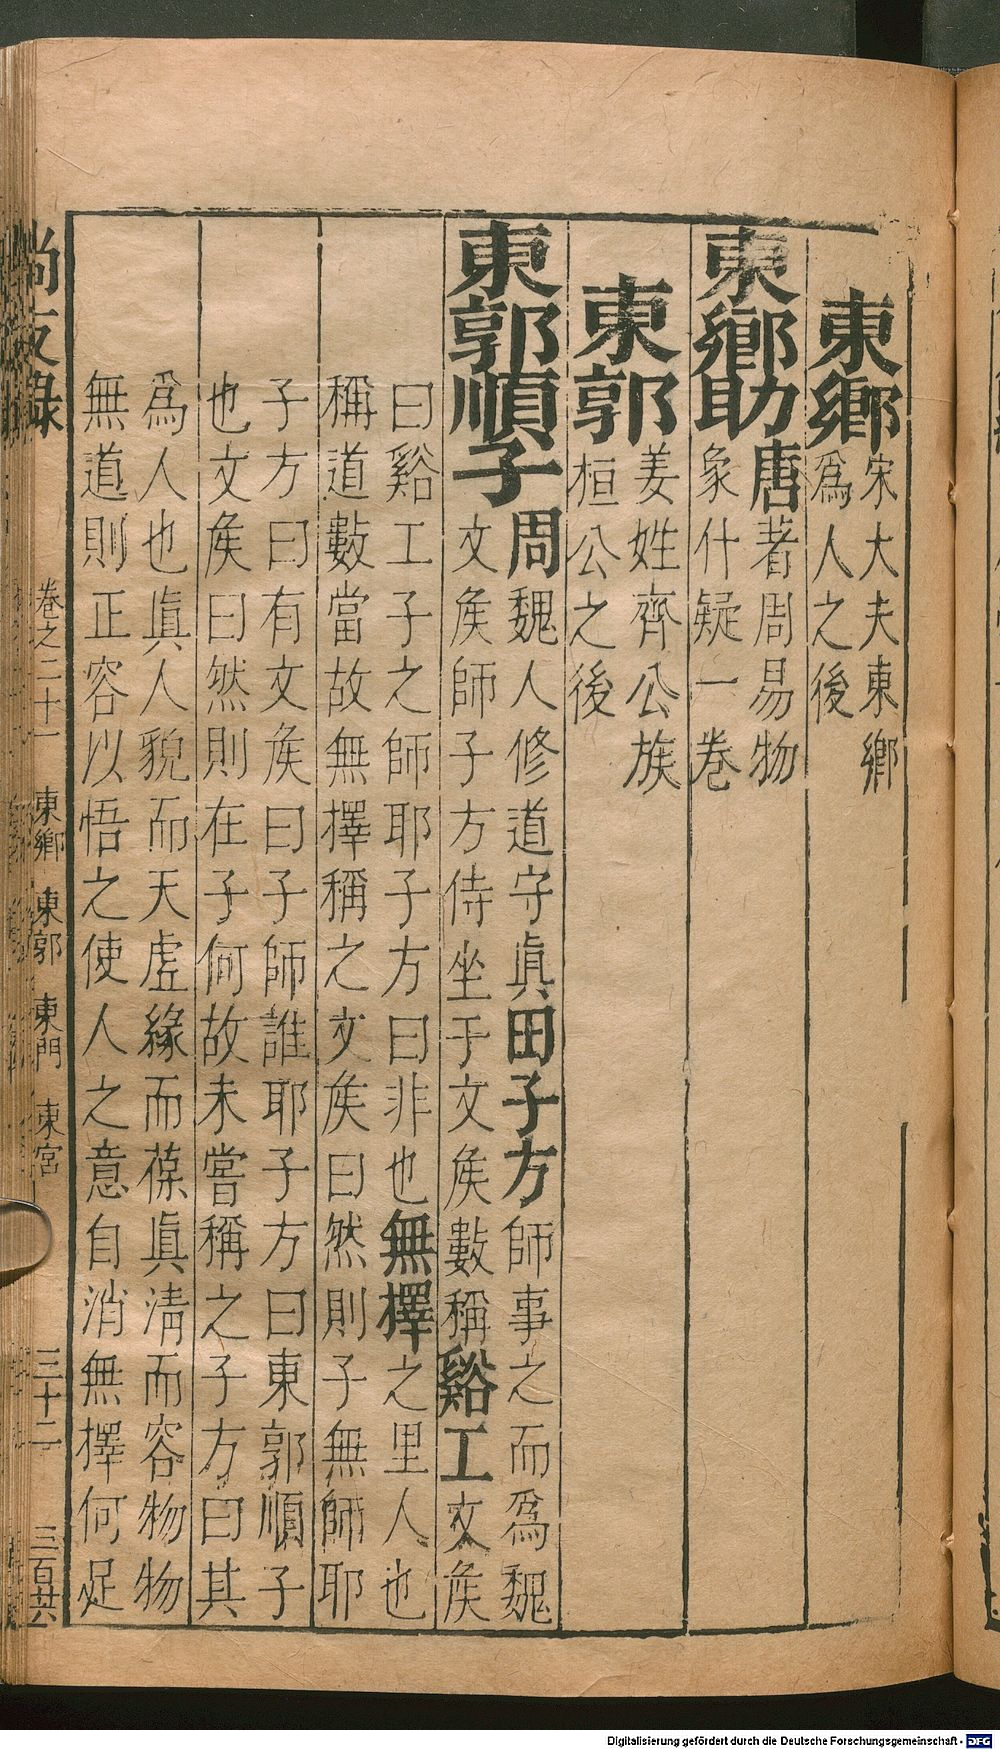 東鄉
宋大夫東鄉
爲人之後
東鄉助
唐著周易物
象什疑一卷
東郭
姜姓齊公族
桓公之後
東郭順子
周魏人修道守眞田子方師事之而爲魏
文矦師子方侍坐于文矦數稱谿工文矦
曰谿工子之師耶子方曰非也無擇之里人也
稱道數當故無擇稱之文矦曰然則子無師耶
子方曰有文矦曰子師誰耶子方曰東郭順子
也文矦曰然則在子何故未嘗稱之子方曰其
爲人也眞人貌而天虛緣而葆眞淸而容物物
無道則正容以悟之使人之意自消無擇何足
尚友錄 卷之二十一 東鄉 東郭 東門 東宮 三十二 三百廿六
Digitalisierung gefördert durch die Deutsche Forschungsgemeinschaft - DFG